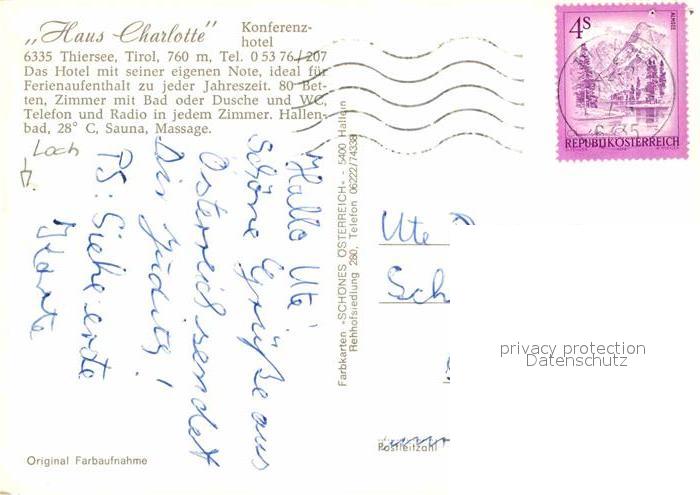 „Haus Charlotte” Konferenz-
hotel
6335 Thiersee, Tirol, 760 m, Tel. 0 53 76 / 207
Das Hotel mit seiner eigenen Note, ideal für
Ferienaufenthalt zu jeder Jahreszeit. 80 Bet-
ten, Zimmer mit Bad oder Dusche und WC,
Telefon und Radio in jedem Zimmer. Hallen-
bad, 28° C, Sauna, Massage.
Loch
Hallo Ute!
Schöne Grüße aus
Österreich sendet
Dir Judith!
PS: Siehe erste
Karte
Original Farbaufnahme
Farbkarten »SCHÖNES ÖSTERREICH« - 5400 Hallein
Rehhofsiedlung 280, Telefon 06222/74338
4S
ALMSEE
REPUBLIK ÖSTERREICH
6335
Ute
Sch
Postleitzahl
privacy protection
Datenschutz